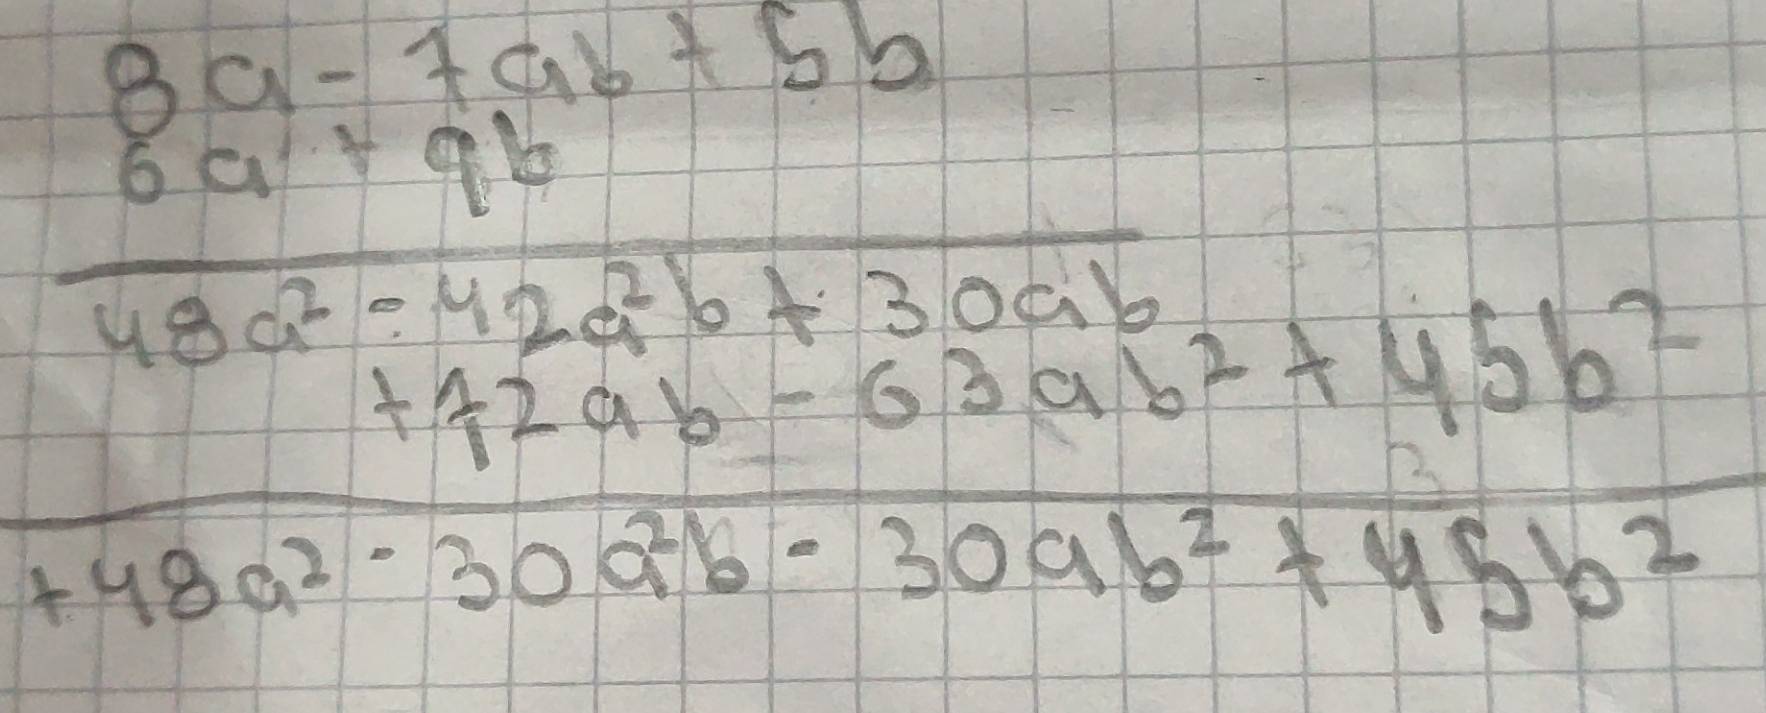 8a - 7ab + 5b
6a + 9b
48a² - 42a²b + 30ab
+72ab - 63ab² + 45b²
+48a² - 30a²b - 30ab² + 45b²